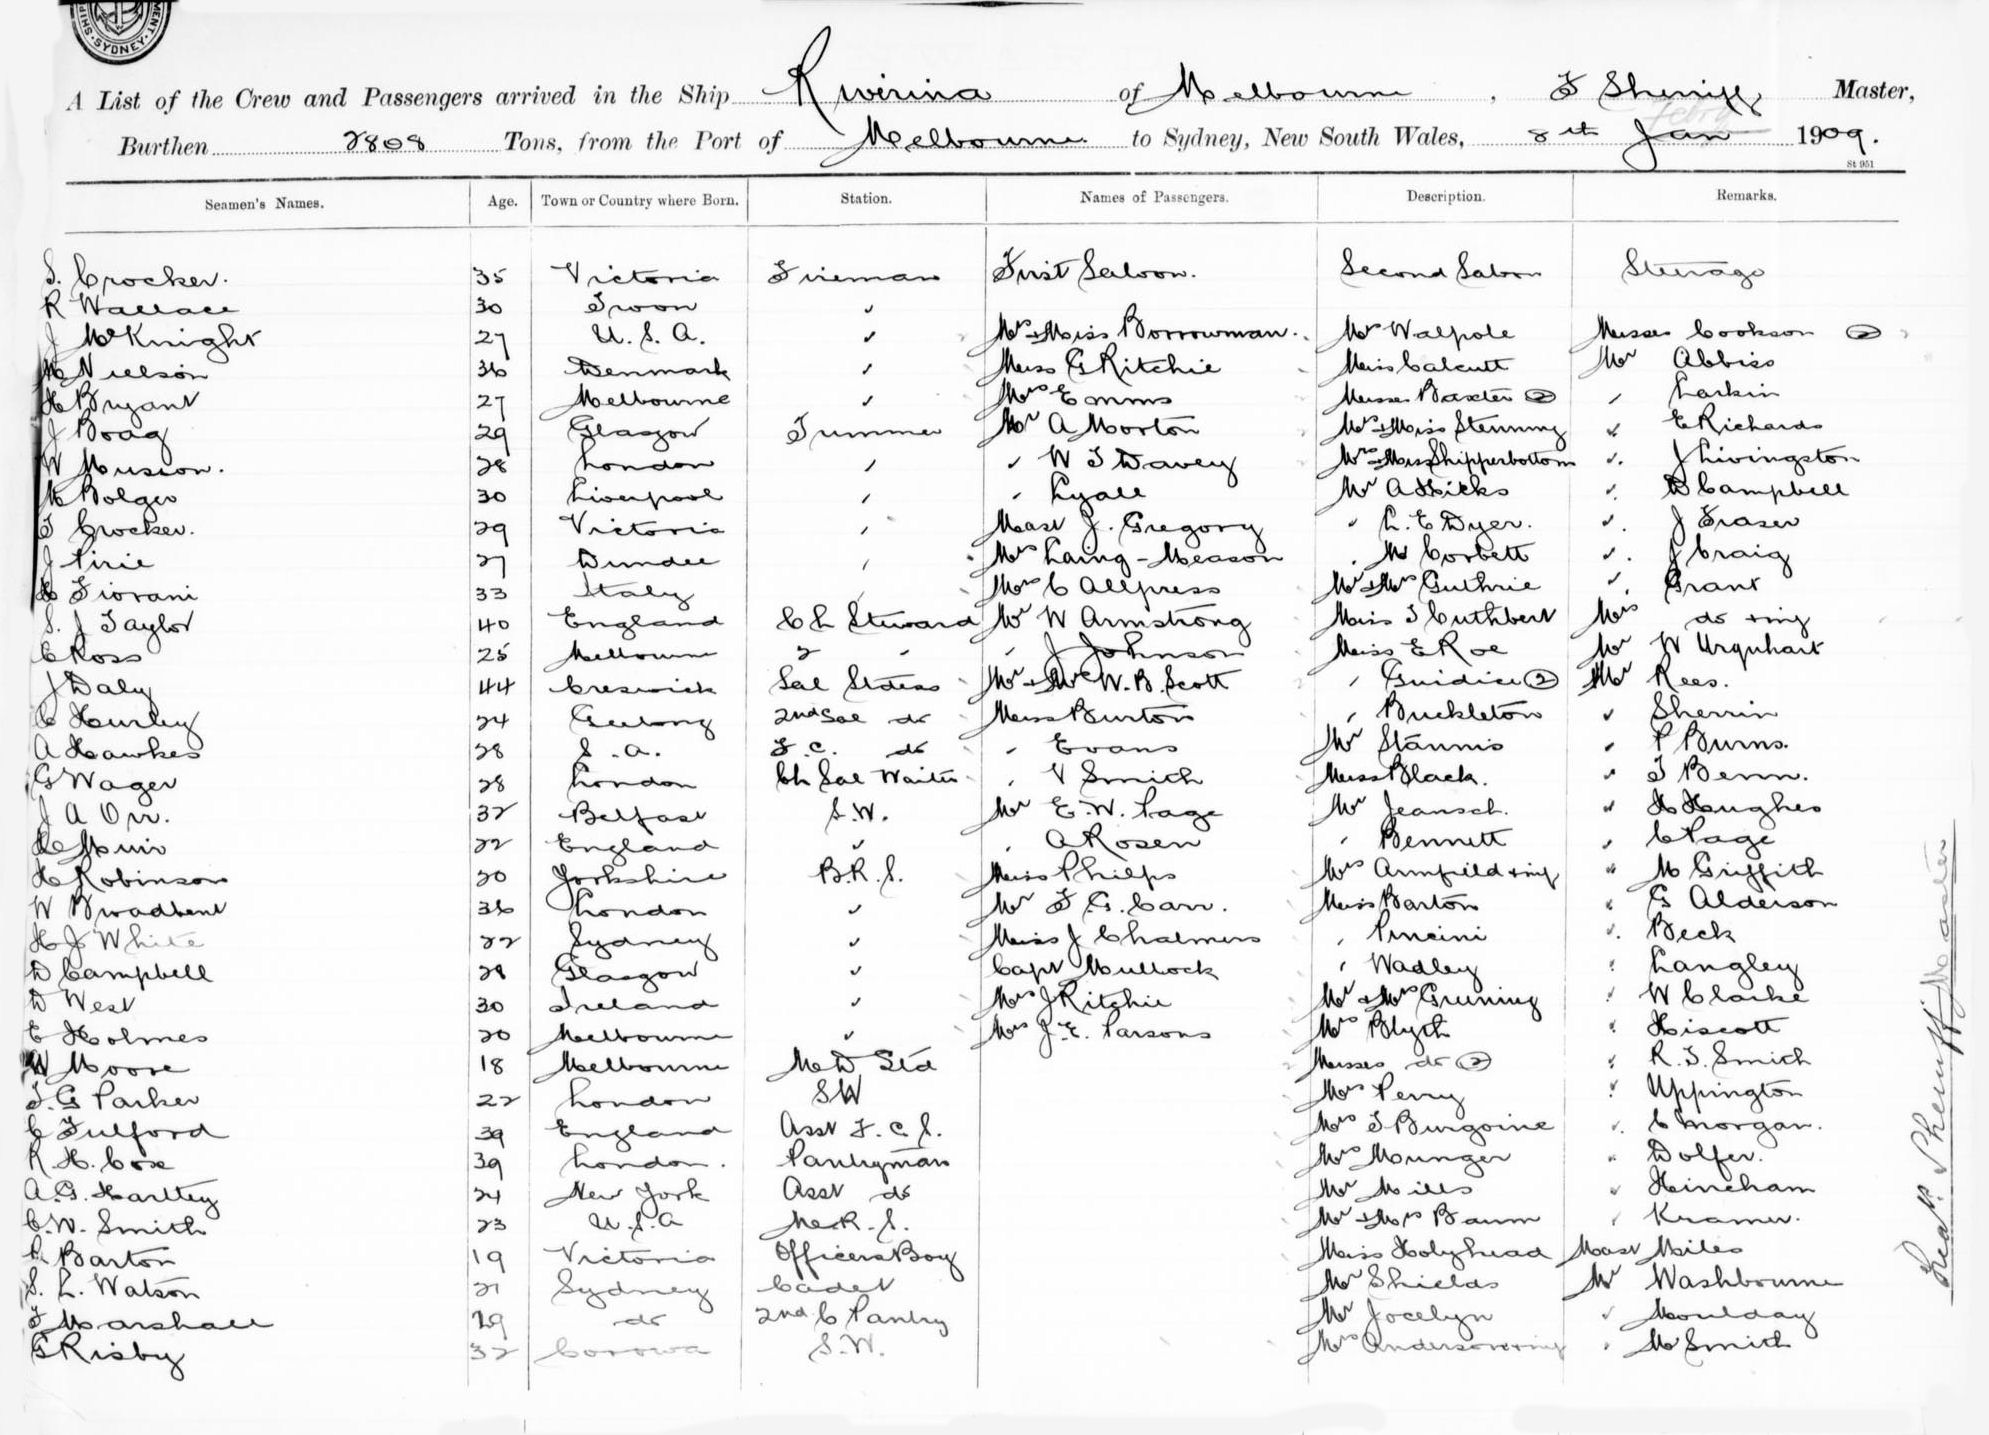 SYDNEY
A List of the Crew and Passengers arrived in the Ship Riverina of Melbourne, F Sherriff Master,
Burthen 2808 Tons, from the Port of Melbourne to Sydney, New South Wales, 8th Jan Febry 1909.
St 951
Seamen's Names. Age. Town or Country where Born. Station. Names of Passengers. Description. Remarks.
S. Crocker. 35 Victoria Fireman First Saloon. Second Saloon Steerage
R Wallace 30 Troon "
J McKnight 27 U.S.A. " Mrs + Miss Borrowman. Mr Walpole Misses Cookson 2
Nielson 36 Denmark " Miss G Ritchie Miss Calcutt Mr Abbiss
H Bryant 27 Melbourne " Mrs Emms Misses Baxter 2 " Larkin
J Boag 29 Glasgow Trimmer Mr A Morton Mrs + Miss Stenning " E Richards
W Musson. 28 London " " W T Davey Mrs + Miss Shipperbottom " J Livingston
M Bolger 30 Liverpool " " Lyall Mr A Hicks " D Campbell
T Crocker. 29 Victoria " Mast J. Gregory " L. E Dyer. " J Fraser
J Pirie 27 Dundee " Mrs Laing-Meason " M Corbett " J Craig
Fiorani 33 Italy " Mrs C Allpress Mr + Mrs Guthrie " Grant
S. J Taylor 40 England Ch Steward Mr W Armstrong Miss T Cuthbert Mrs do + inf
C Ross 25 Melbourne 2 " " J Johnson Miss E Roe Mr W Urquhart
J Daly 44 Creswick Sal Stdess Mr + Mrs W. B. Scott " Guidice 2 Mr Rees.
C Hurley 24 Geelong 2nd Sal do Miss Burton " Buckleton " Sherrin
A Hawkes 28 S.A. F.C. do " Evans Mr Stannis " P Burns.
G Wager 28 London Ch Sal Waiter " V Smith Miss Black. " T Benn.
J A Orr. 32 Belfast S.W. Mr E.W. Page Mr Jeansch. " H Hughes
Muir 22 England " " A Rosen " Bennett " C Page
H Robinson 20 Yorkshire B.R.S. Miss Philps Mrs Armfield + inf " M Griffith
W Broadbent 36 London " Mr F. G. Carr. Miss Barton " G Alderson
H J White 22 Sydney " Miss J Chalmers " Pincini " Beck
D Campbell 28 Glasgow " Capt Mullock " Wadley " Langley
D West 30 Ireland " Mrs J Ritchie Mr + Mrs Gruning " W Clarke
E Holmes 20 Melbourne " Mrs J. E. Parsons Mrs Blyth " Hiscott
W Moore 18 Melbourne M D Std Misses do 2 " R. T. Smith
T. G Parker 22 London SW Mrs Perry " Uppington
C Fulford 39 England Asst F.C.S. Mrs T Burgoine " C Morgan.
R H. Cox 39 London. Pantryman Mrs Munger " Dolfer.
A. G. Hartley 24 New York Asst do Mr Mills " Hincham
C. W. Smith 23 U.S.A Mess R. S. Mr + Mrs Baum " Kramer.
Barton 19 Victoria Officers Boy Miss Holyhead Mast Miles
S. L. Watson 21 Sydney Cadet Mr Shields Mr Washbourne
F Marshall 29 do 2nd C Pantry Mr Jocelyn " Moulday
G Risby 32 Corowa S.W. Mrs Anderson + inf " M Smith
Sherriff Master